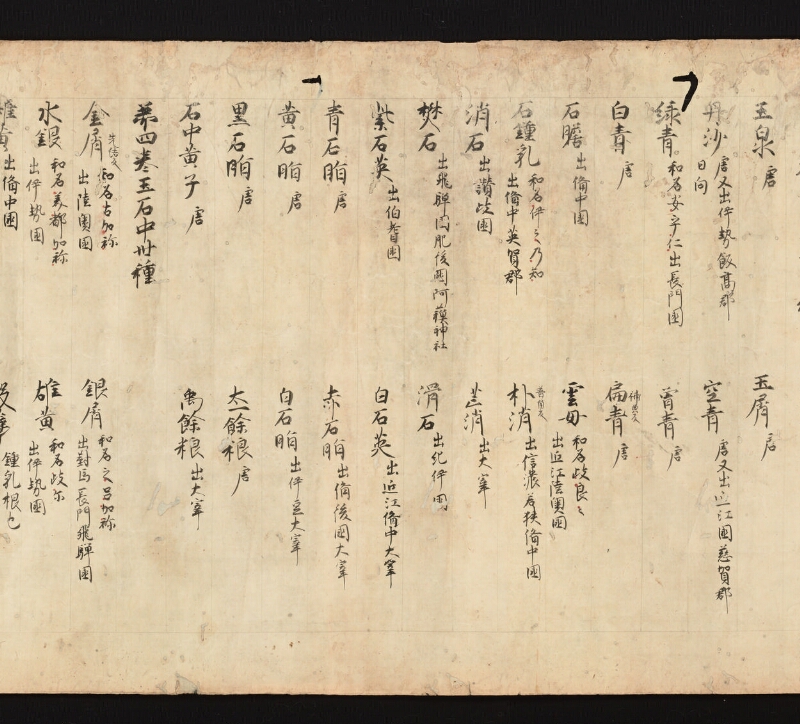 玉泉 唐 玉屑 唐
丹沙 唐又出伊勢飯高郡日向 空青 唐又出近江國慈賀郡
緑青 和名安乎仁出長門國 曾青 唐
白青 唐 扁青 唐
石膽 出備中國 雲母 和名岐良々出近江陸奥國
石鍾乳 和名伊之乃知出備中英賀郡 朴消 出信濃若狭備中國
消石 出讃岐國 芒消 出大宰
樊石 出飛騨國肥後國阿蘓神社 滑石 出紀伊國
紫石英 出伯耆國 白石英 出近江備中大宰
青石脂 唐 赤石脂 出備後國大宰
黄石脂 唐 白石脂 出伊豆大宰
黒石脂 唐 太一餘粮 唐
石中黄子 唐 禹餘粮 出大宰
第四巻玉石中卅種
金屑 和名古加祢出陸奥國 銀屑 和名之呂加祢出對馬長門飛騨國
水銀 和名美都加祢出伊勢國 雄黄 和名岐尓出伊勢國
雌黄 出備中國 鍾乳根也